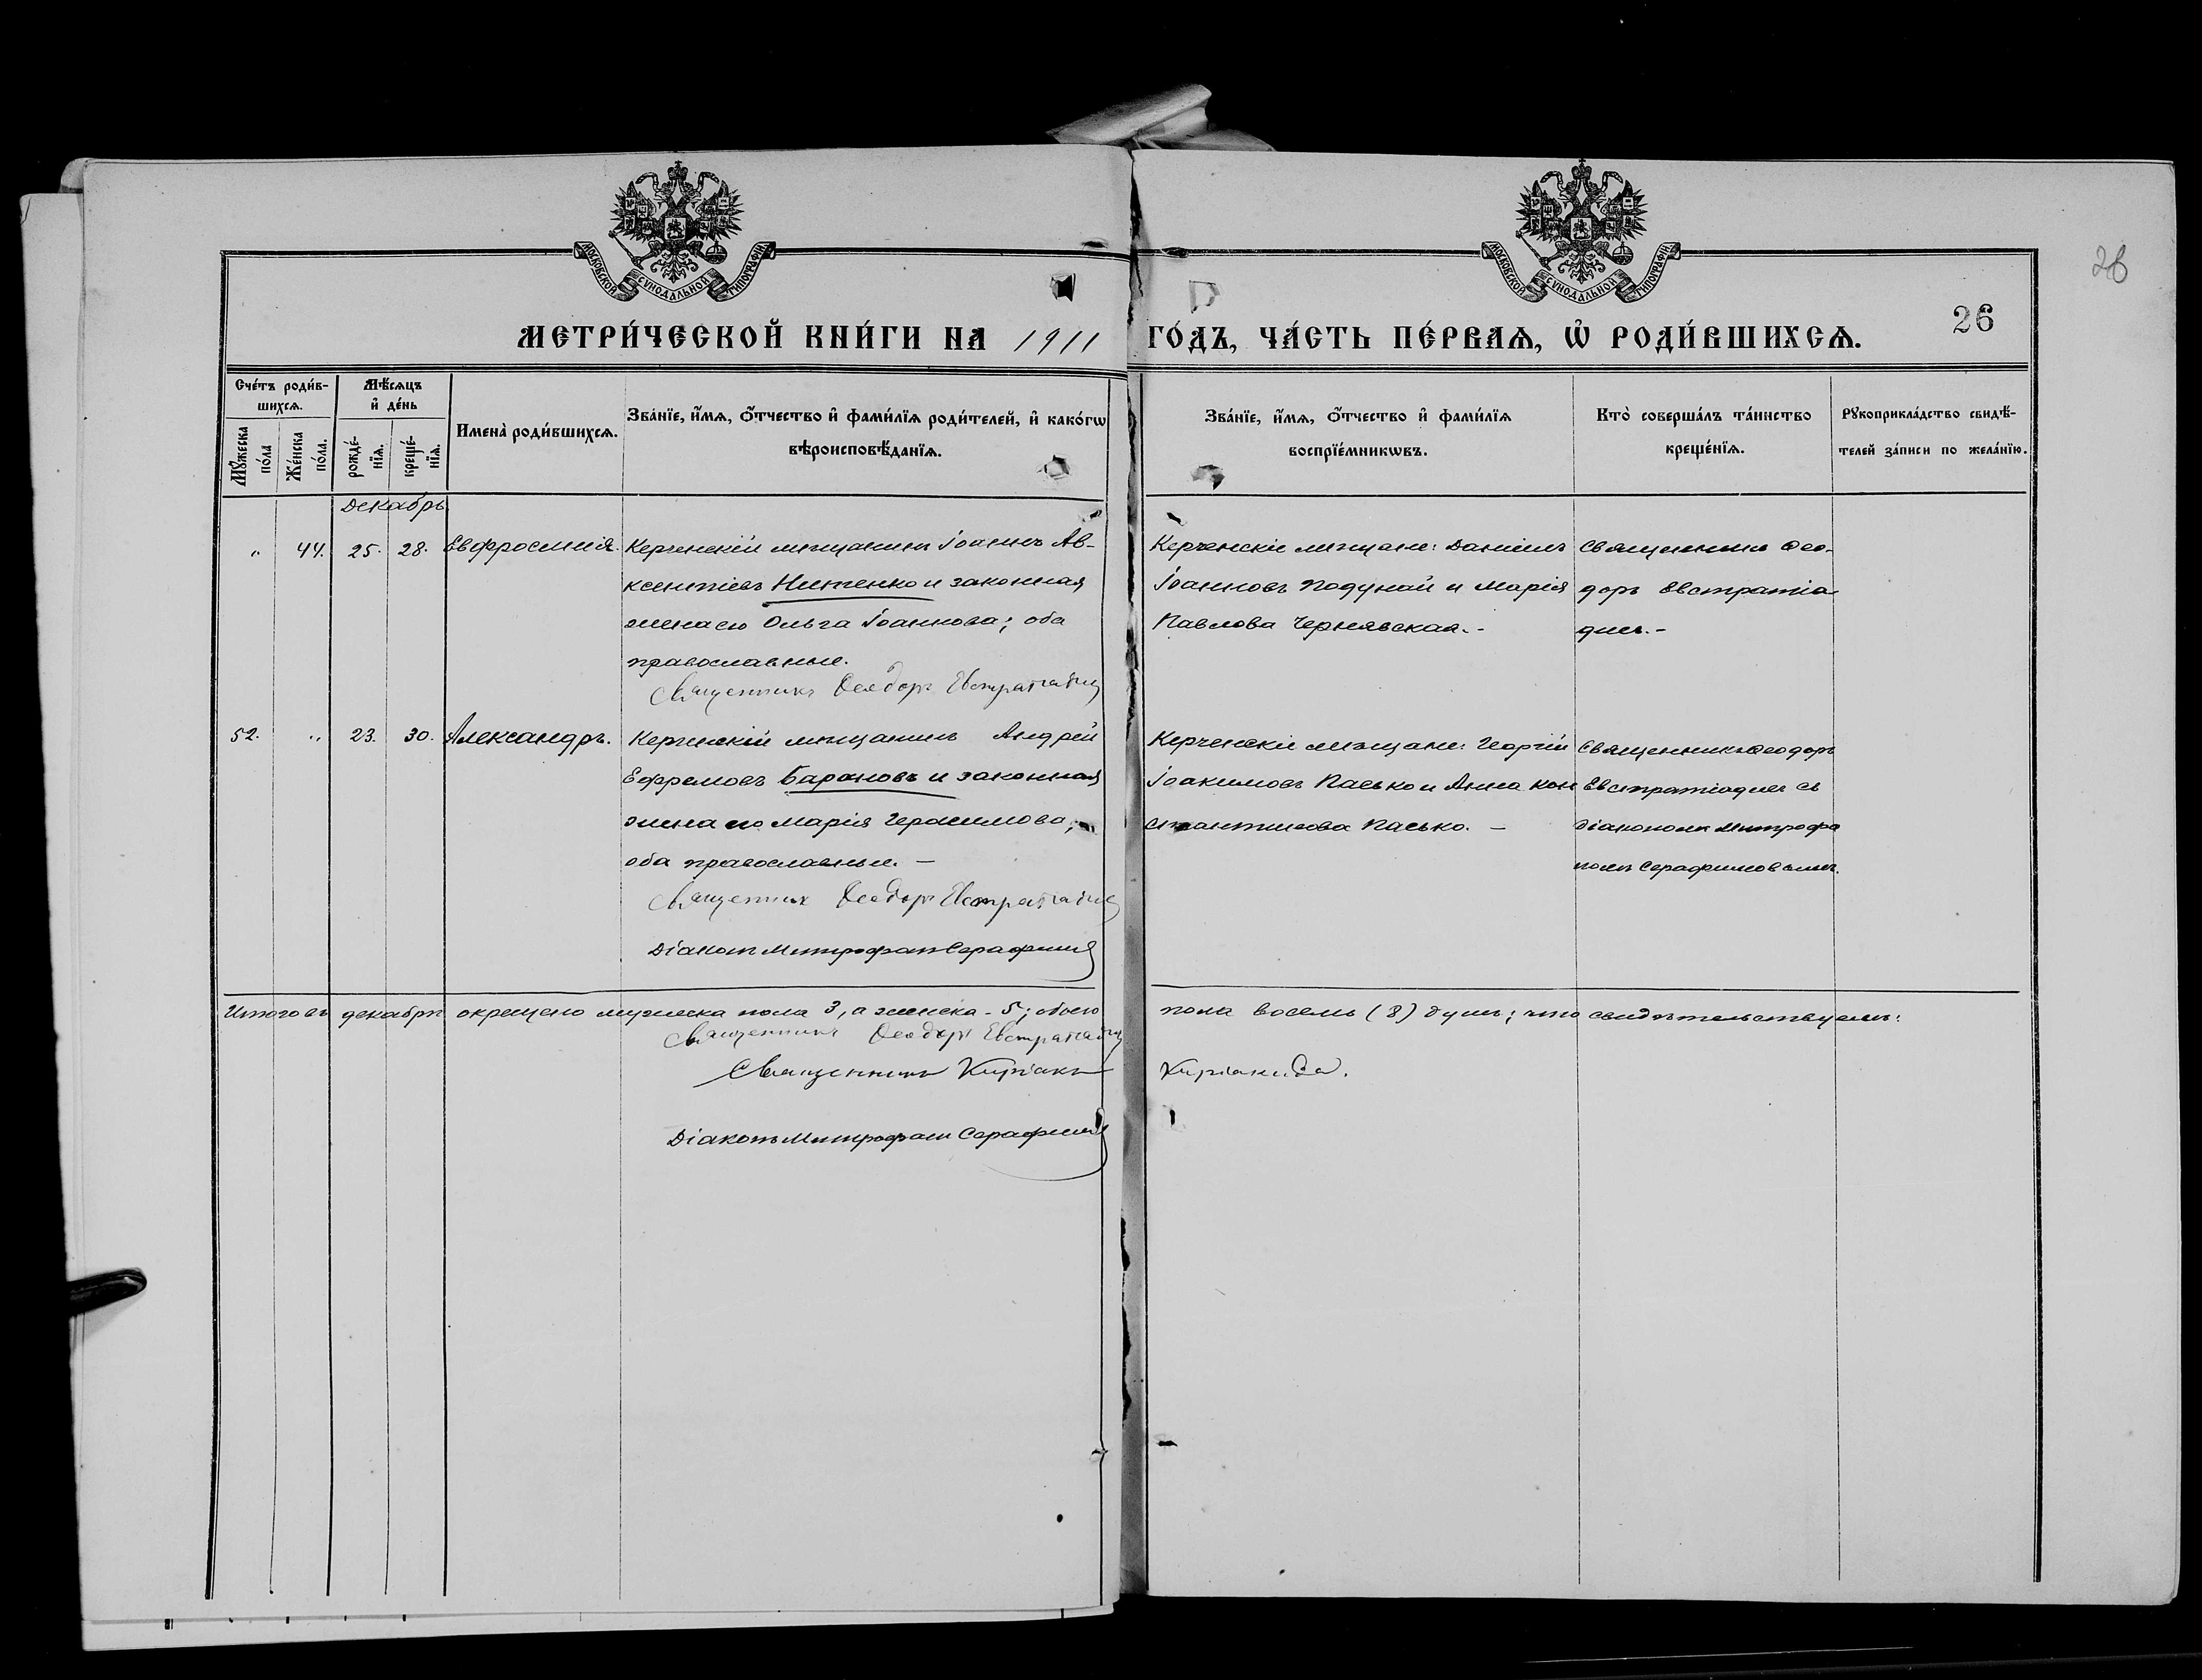 МОСКОВСКОЙ СѴНОДАЛЬНОЙ ТИПОГРАФІИ
МОСКОВСКОЙ СѴНОДАЛЬНОЙ ТИПОГРАФІИ
28
26
МЕТРИ́ЧЕСКОЙ КНИ́ГИ НА 1911 ГО́ДЪ, ЧА́СТЬ ПЕ́РВАѦ, Ѡ҆ РОДИ́ВШИХСѦ.
Сче́тъ роди́в-
шихсѧ.
Мꙋ́жеска по́ла
Же́нска по́ла.
Мѣ́сѧцъ
и҆ де́нь
рожде́-нїѧ.
креще́-нїѧ.
Имена̀ роди́вшихсѧ.
Зва́нїе, и҆́мѧ, ѻ҆́тчество и҆ фами́лїѧ роди́телей, и҆ како́гѡ
вѣроисповѣ́данїѧ.
Зва́нїе, и҆́мѧ, ѻ҆́тчество и҆ фами́лїѧ
воспрїе́мникѡвъ.
Кто̀ соверша́лъ та́инство
креще́нїѧ.
Рꙋкоприкла́дство свидѣ́-
телей за́писи по жела́нїю.
Декабрь
" 44. 25. 28. Евфросинія.
Керченскій мѣщанинъ Іоаннъ Ав-
ксентіевъ Нитенко и законная
жена его Ольга Іоаннова; оба
православные.
Священникъ Ѳеодоръ Евстратіадис
Керченскіе мѣщане: Даніилъ
Іоанновъ Подунай и Марія
Павлова Чернявская. -
Священникъ Ѳео-
доръ Евстратіа
дисъ. -
52. " 23. 30. Александръ.
Керченскій мѣщанинъ Андрей
Ефремовъ Барановъ и законная
жена его Марія Герасимова;
оба православные. -
Священник Ѳеодоръ Евстратіадис
Діаконъ Митрофанъ Серафимов
Керченскіе мѣщане: Георгій
Іоакимовъ Пасько и Анна Кон
стантинова Пасько. -
Священникъ Ѳеодоръ
Евстратіадисъ съ
діакономъ Митрофа
номъ Серафимовымъ.
Итого въ декабрѣ окрещено мужеска пола 3, а женска - 5; обоего пола восемь (8) душъ; что свидѣтельствуемъ:
Священникъ Ѳеодоръ Евстратіадис
Священникъ Киріакъ Киріакиди.
Діаконъ Митрофанъ Серафимов